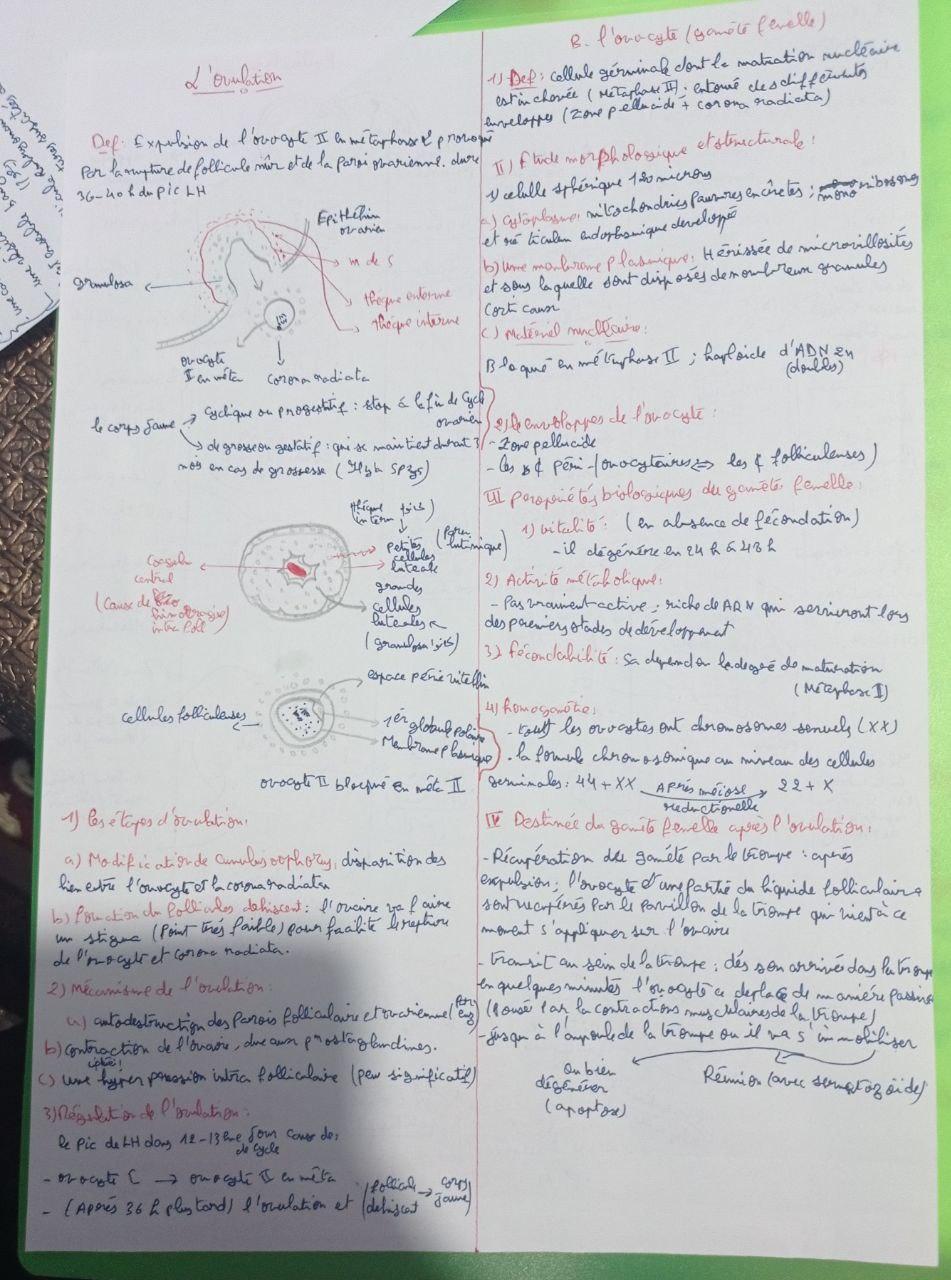 L'ovulation
Def: Expulsion de l'ovocyte II en métaphase 2 provoqué
Par la rupture de follicule mûr et de la paroi ovarienne. dure
36-40h du pic LH
Epithélium
ovarien
m de S
granulosa
thèque externe
thèque interne
ovocyte
II en méta
corona radiata
le corps Jaune → cyclique ou progestatif : stop à la fin de cycle
ovarien
→ de grossesse ou gestatif : qui se maintient durant 3
mois en cas de grossesse
thèque
intern
petites
cellules
lutéale
Coagulum
central
(Cause de
hémorragie
intra foll)
grandes
cellules
lutéales
(granulosa
espace périvitellin
cellules folliculeuses
1er
globule polaire
Membrane plasmique
ovocyte II bloqué en méta II
1) les étapes d'ovulation:
a) Modification de cumulus oophorus; disparition des
lien entre l'ovocyte et la corona radiata
b) formation du follicules dehiscent : l'ovaire va faire
un stigma (Point très faible) pour facilité le rupture
de l'ovocyte et corona radiata.
2) Mécanisme de l'ovulation:
a) autodestruction des parois folliculaire et ovarienne
b) contraction de l'ovaire, due aux prostaglandines.
c) une hyper pression intra folliculaire (peu significatif)
3) Régulation de l'ovulation:
le Pic de LH dans 12-13ème Jour cause de:
de cycle
- ovocyte I → ovocyte II en méta
- (Après 36 h plus tard) l'ovulation et (follicule dehiscent → corps Jaune)
B. l'ovocyte (gamète femelle)
1) Def: cellule gérminale dont la maturation nucléaire
est inachevée (Métaphase II). entouré des différentes
enveloppes (Zone pellucide + corona radiata)
II) Etude morphologique et structurale:
1) celulle sphérique 120 microns
a) cytoplasme: mitochondries Pauvres en crêtes; ribosomes
et réticulum endoplasmique developpé
b) une membrane plasmique: Hérissée de microvillosités
et sous laquelle sont disposés de nombreux granules
corticaux
c) Matériel nucléaire:
Bloqué en métaphase II ; haploide d'ADN 2n
(doubles)
2) le enveloppes de l'ovocyte:
- Zone pellucide
- les ¢ péri-ovocytaires ⇔ les ¢ folliculeuses)
III propriétés biologiques du gamète femelle:
1) vitalité: (en absence de fécondation)
- il dégénère en 24h à 48h
2) Activité métabolique:
- Pas vraiment active; riche de ARN qui serviront lors
des premiers stades de développement
3) fécondabilité: Sa depend au la degré de maturation
(Métaphase II)
4) homogamétie:
- tout les ovocytes ont chromosomes sexuels (XX)
. la formule chromosomique au niveau des cellules
germinales: 44+XX Après méiose réductionelle → 22+X
IV Destinée du gamète femelle après l'ovulation:
- Récupération du gamète par le trompe : après
expulsion; l'ovocyte d'une partie du liquide folliculaire
sont récupérés par le pavillon de la trompe qui vient à ce
moment s'appliquer sur l'ovaire
- transit au sein de la trompe: dès son arrivée dans la trompe
en quelques minutes l'ovocyte ce deplace de maniére passive
(Poussé Par la contractions musculaires de la trompe)
- Jusqu'à l'ampoule de la trompe ou il va s'immobiliser
ou bien
dégénérer
(apoptose)
Réunion (avec spermatozoïde)